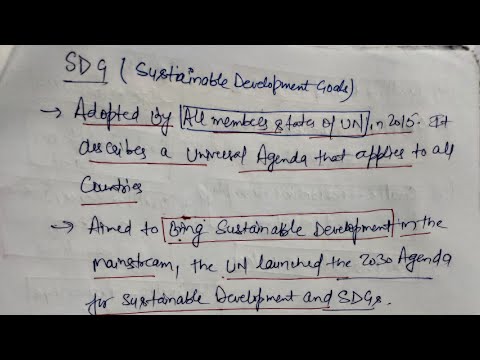 SDG (Sustainable Development Goals)
→ Adopted By All members state of UN, in 2015. It
describes a Universal Agenda that applies to all
Countries
→ Aimed to Bring Sustainable Development in the
mainstream, the UN launched the 2030 Agenda
for Sustainable Development and SDGs.